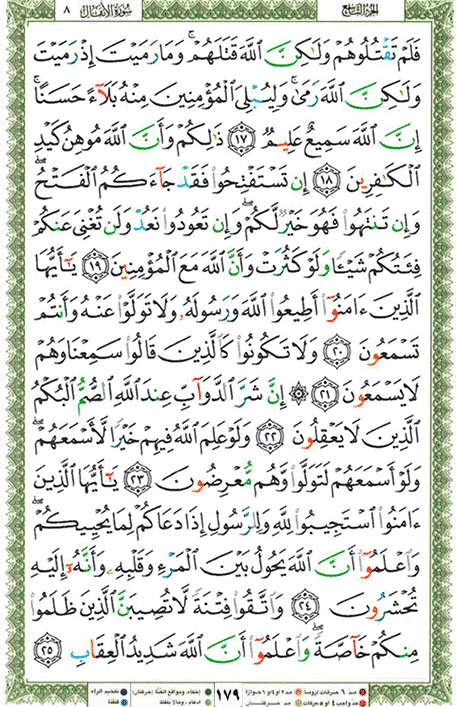 الجزء التاسع سورة الأنفال ٨
فَلَمْ تَقْتُلُوهُمْ وَلَٰكِنَّ ٱللَّهَ قَتَلَهُمْ ۚ وَمَا رَمَيْتَ إِذْ رَمَيْتَ
وَلَٰكِنَّ ٱللَّهَ رَمَىٰ ۚ وَلِيُبْلِىَ ٱلْمُؤْمِنِينَ مِنْهُ بَلَآءً حَسَنًا ۚ
إِنَّ ٱللَّهَ سَمِيعٌ عَلِيمٌ ١٧ ذَٰلِكُمْ وَأَنَّ ٱللَّهَ مُوهِنُ كَيْدِ
ٱلْكَٰفِرِينَ ١٨ إِن تَسْتَفْتِحُوا۟ فَقَدْ جَآءَكُمُ ٱلْفَتْحُ ۖ
وَإِن تَنتَهُوا۟ فَهُوَ خَيْرٌ لَّكُمْ ۖ وَإِن تَعُودُوا۟ نَعُدْ وَلَن تُغْنِىَ عَنكُمْ
فِئَتُكُمْ شَيْـًٔا وَلَوْ كَثُرَتْ وَأَنَّ ٱللَّهَ مَعَ ٱلْمُؤْمِنِينَ ١٩ يَٰٓأَيُّهَا
ٱلَّذِينَ ءَامَنُوٓا۟ أَطِيعُوا۟ ٱللَّهَ وَرَسُولَهُۥ وَلَا تَوَلَّوْا۟ عَنْهُ وَأَنتُمْ
تَسْمَعُونَ ٢٠ وَلَا تَكُونُوا۟ كَٱلَّذِينَ قَالُوا۟ سَمِعْنَا وَهُمْ
لَا يَسْمَعُونَ ٢١ ۞ إِنَّ شَرَّ ٱلدَّوَآبِّ عِندَ ٱللَّهِ ٱلصُّمُّ ٱلْبُكْمُ
ٱلَّذِينَ لَا يَعْقِلُونَ ٢٢ وَلَوْ عَلِمَ ٱللَّهُ فِيهِمْ خَيْرًا لَّأَسْمَعَهُمْ ۖ
وَلَوْ أَسْمَعَهُمْ لَتَوَلَّوا۟ وَّهُم مُّعْرِضُونَ ٢٣ يَٰٓأَيُّهَا ٱلَّذِينَ
ءَامَنُوا۟ ٱسْتَجِيبُوا۟ لِلَّهِ وَلِلرَّسُولِ إِذَا دَعَاكُمْ لِمَا يُحْيِيكُمْ ۖ
وَٱعْلَمُوٓا۟ أَنَّ ٱللَّهَ يَحُولُ بَيْنَ ٱلْمَرْءِ وَقَلْبِهِۦ وَأَنَّهُۥٓ إِلَيْهِ
تُحْشَرُونَ ٢٤ وَٱتَّقُوا۟ فِتْنَةً لَّا تُصِيبَنَّ ٱلَّذِينَ ظَلَمُوا۟
مِنكُمْ خَآصَّةً ۖ وَٱعْلَمُوٓا۟ أَنَّ ٱللَّهَ شَدِيدُ ٱلْعِقَابِ ٢٥
مد ٦ حركات لزوماً مد ٢ او ٤ او ٦ جوازاً ١٧٩ إخفاء، ومواقع الغنة (حركتان) تفخيم الراء
مد واجب ٤ او ٥ حركات مد حركتان إدغام، ومالا يلفظ قلقلة